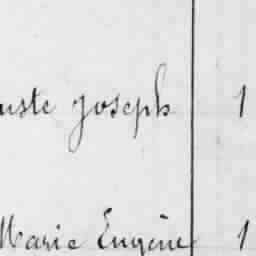 uste Joseph 1
Marie Eugène 1